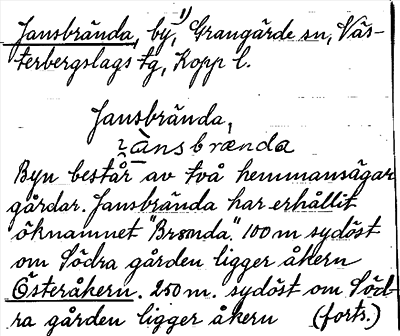 Jansbrända, by,¹⁾ Grangärde sn, Väs-
terbergslags tg, Kopp l.
Jansbrända,
Ànsbrænda
Byn består av två hemmansägar
gårdar. Jansbrända har erhållit
öknamnet "Brända". 100 m sydöst
om Södra gården ligger åkern
Österåkern. 250 m. sydöst om Söd-
ra gården ligger åkern (forts.)